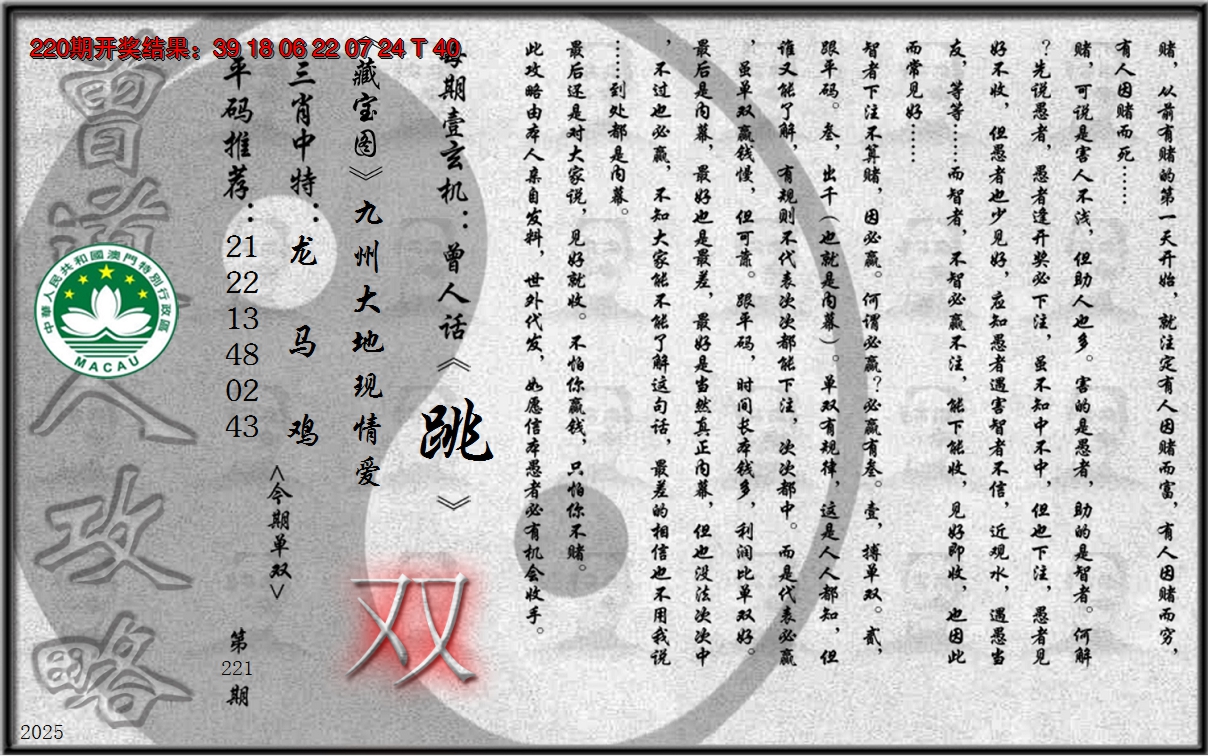 220期开奖结果：39 18 06 22 07 24 T 40
赌，从前有赌的第一天开始，就注定有人因赌而富，有人因赌而穷，
有人因赌而死……
赌，可说是害人不浅，但助人也多。害的是愚者，助的是智者。何解
？先说愚者，愚者逢开奖必下注，虽不知中不中，但也下注，愚者见
好不收，但愚者也少见好，应知愚者遇害智者不信，近观水，遇愚当
友，等等……而智者，不智必赢不注，能下能收，见好即收，也因此
而常见好……
智者下注不算赌，因必赢。何谓必赢？必赢有叁。壹，搏单双。贰，
跟平码。叁，出千（也就是内幕）。单双有规律，这是人人都知，但
谁又能了解，有规则不代表次次都能下注，次次都中。而是代表必赢
，虽单双赢钱慢，但可靠。跟平码，时间长本钱多，利润比单双好。
最后是内幕，最好也是最差，最好是当然真正内幕，但也没法次次中
，不过也必赢，不知大家能不能了解这句话，最差的相信也不用我说
……到处都是内幕。
最后还是对大家说，见好就收。不怕你赢钱，只怕你不赌。
此攻略由本人亲自发料，世外代发，如愿信本愚者必有机会收手。
每期壹玄机：曾人话《跳》
《藏宝图》九州大地现情爱
双
三肖中特：龙 马 鸡
<今期单双>
平码推荐：21 22 13 48 02 43
第221期
曾道人攻略
中華人民共和國澳門特別行政區
MACAU
2025